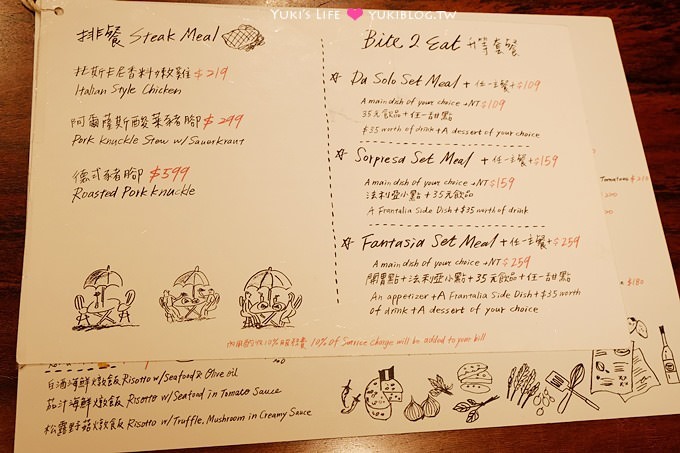 YUKI'S LIFE ♥ YUKIBLOG.TW
排餐 Steak Meal
托斯卡尼香料嫩雞 $219
Italian Style Chicken
阿爾薩斯酸菜豬腳 $299
Pork Knuckle Stew w/ Sauerkraut
德式豬腳 $599
Roasted Pork Knuckle
Bite 2 Eat 升等套餐
☆ Da Solo Set Meal + 任一主餐 + $109
A main dish of your choice + NT $109
35元飲品 + 任一甜點
$35 worth of drink + A dessert of your choice
☆ Sorpresa Set Meal + 任一主餐 + $159
A main dish of your choice + NT $159
法利亞小點 + 35元飲品
A Frantalia Side Dish + $35 worth of drink
☆ Fantasia Set Meal + 任一主餐 + $259
A main dish of your choice + NT $259
開胃點 + 法利亞小點 + 35元飲品 + 任一甜點
An appetizer + A Frantalia Side Dish + $35 worth
of drink + A dessert of your choice
內用酌收10%服務費 10% Of Service Charge will be added to your bill
Tomatoes $21
$180
白酒海鮮燉飯 Risotto w/ Seafood & Olive oil
茄汁海鮮燉飯 Risotto w/ Seafood in Tomato Sauce
松露野菇燉飯 Risotto w/ Truffle, Mushroom in Creamy Sauce